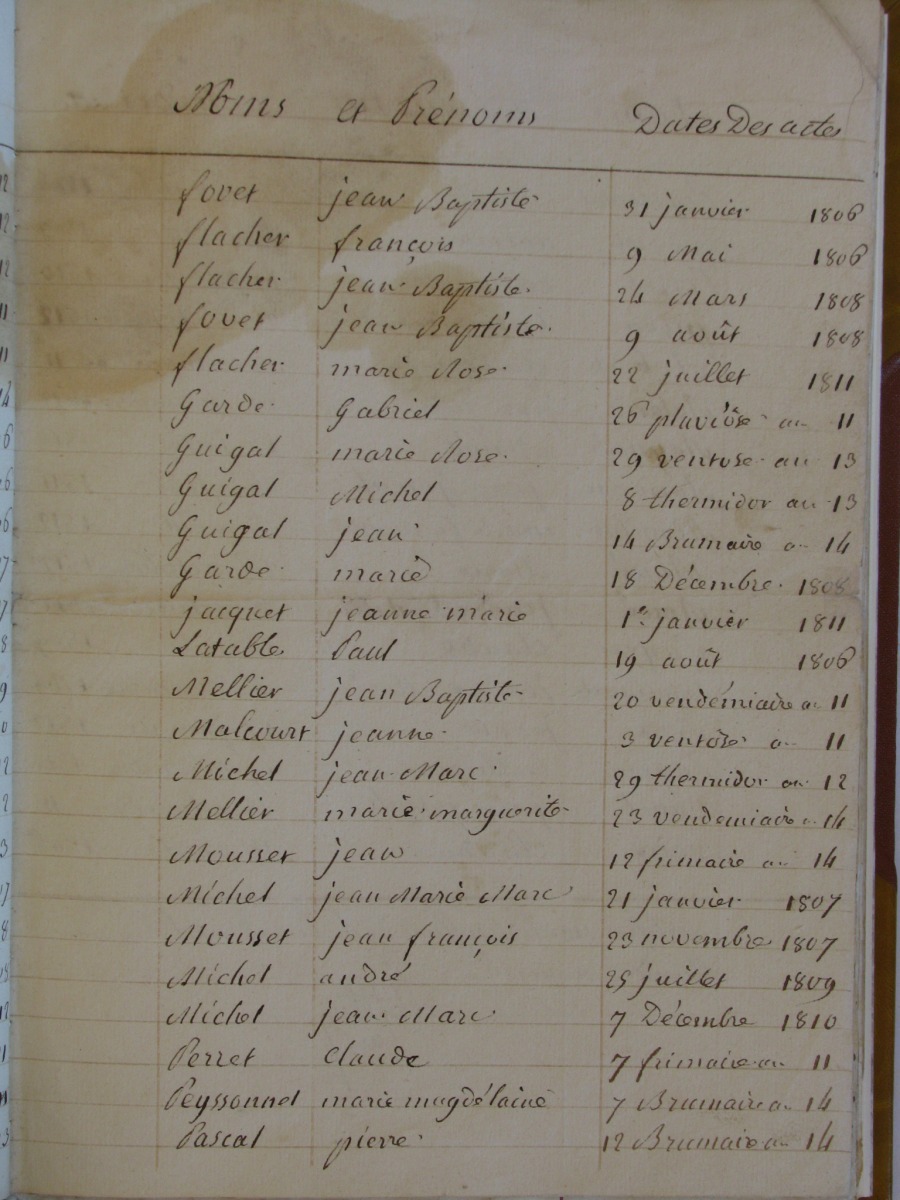 Noms et Prénoms Dates Des actes
fovet jean Baptiste 31 janvier 1806
flacher françois 9 Mai 1806
flacher jean Baptiste 24 Mars 1808
fovet jean Baptiste 9 août 1808
flacher marie Rose 22 juillet 1811
Garde Gabriel 26 pluviôse an 11
Guigal marie Rose 29 ventose an 13
Guigal Michel 8 thermidor an 13
Guigal jean 14 Brumaire an 14
Garde marie 18 Décembre 1808
jacquet jeanne marie 1er janvier 1811
Latable Paul 19 août 1806
Mellier jean Baptiste 20 vendémiaire an 11
Malcourt jeanne 3 ventôse an 11
Michel jean Marc 29 thermidor an 12
Mellier marie marguerite 23 vendemiaire an 14
Mousset jean 12 frimaire an 14
Michel jean Marie Marc 21 janvier 1807
Mousset jean françois 23 novembre 1807
Michel andré 25 juillet 1809
Michel jean Marc 7 Décembre 1810
Perret Claude 7 frimaire an 11
Peyssonnel marie magdélaine 7 Brumaire an 14
Pascal pierre 12 Brumaire an 14